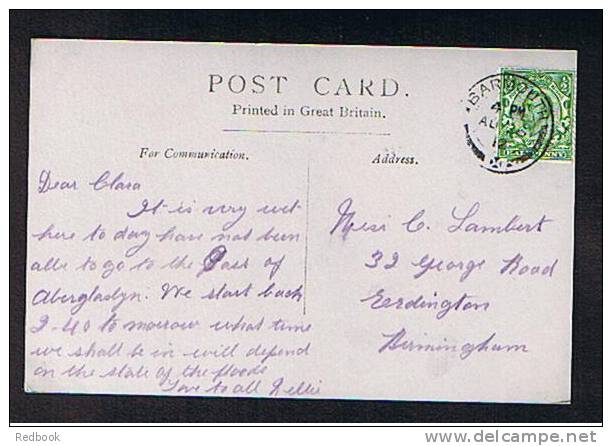 POST CARD.
Printed in Great Britain.
For Communication.
Address.
BARMOUTH
4 PM
AU
HALFPENNY
Dear Clara
It is very wet
here to day have not been
able to go to the Pass of
Abergladyn. We start back
2-40 to morrow what time
we shall be in will depend
on the state of the floods
Love to all Nellie
Miss C. Lambert
32 George Road
Erdington
Birmingham
Redbook
delcampe.net